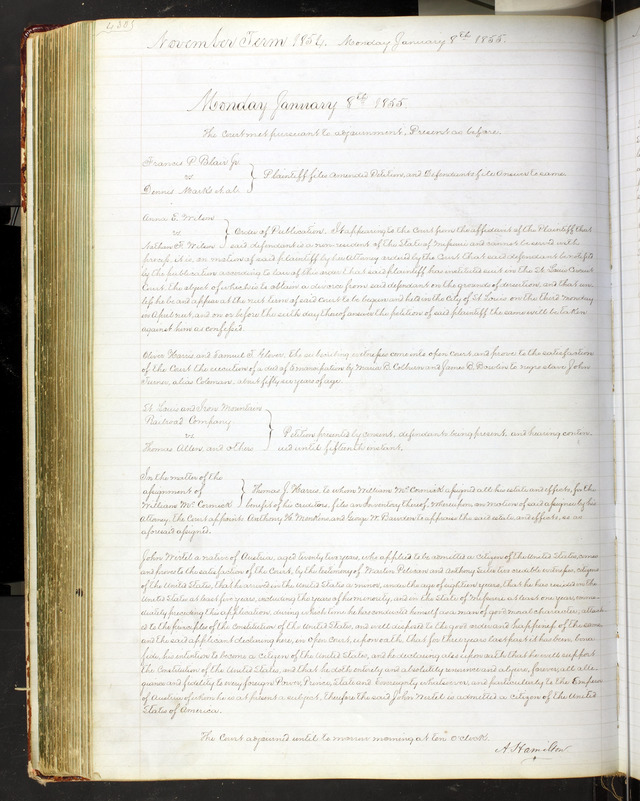 November Term 1854. Monday January 8th 1855.
Monday January 8th 1855
The Court met pursuant to adjournment, Present as before.
Francis P. Blair Jr.
vs
Dennis Marks et al
} Plaintiff files amended Petition, and Defendants file Answer to same
Annie E. Wilson
vs
} Order of Publication. It appearing to the Court from the affidavit of the Plaintiff that
Nathan F. Wilson said defendant is a non resident of the State of Missouri and cannot be served with
process, it is, on motion of said plaintiff by her attorney ordered by the Court that said defendant be notified
by the publication according to law of this order that said plaintiff has instituted suit in the St. Louis Circuit
Court, the object of which is to obtain a divorce from said defendant on the grounds of desertion, and that un-
less he be and appear at the next term of said Court to be begun and held in the City of St Louis on the third Monday
in April next and on or before the sixth day thereof answer the petition of said plaintiff the same will be taken
against him as confessed.
Oliver Harris and Samuel T. Glover, the subscribing witnesses come into open Court and prove to the satisfaction
of the Court the execution of a deed of Emancipation by Marion B. Colburn and James B. Bowlin to negro slave John
Turner, alias Coleman, about fifty six years of age.
St. Louis and Iron Mountain
Railroad Company
vs
Thomas Allen, and others
} Petition presented by consent, defendants being present, and hearing contin-
ued until fifteenth instant.
In the matter of the
assignment of
William McCormick
} Thomas J. Harris, to whom William McCormick assigned all his estate and effects, for the
benefit of his creditors, files an Inventory thereof. Whereupon on motion of said assignee by his
Attorney, the Court appoints Anthony W. and George W. to appraise the said estate and effects, so as
aforesaid assigned.
John a native of Austria, aged twenty two years, who applied to be admitted a citizen of the United States, comes
and proves to the satisfaction of the Court, by the testimony of Martin and Anthony two credible witnesses, citizens
of the United States, that he arrived in the United States a minor, under the age of eighteen years, that he has resided in the
United States at least five years, including the years of his minority, and in the State of Missouri at least one year, imme-
diately preceding this application, during which time he has conducted himself as a man of good moral character, attach-
ed to the principles of the Constitution of the United States, and well disposed to the good order and happiness of the same
and the said applicant declaring here, in open Court, upon oath, that for three years last past it has been bona
fide, his intention to become a citizen of the United States, and he declaring also upon oath that he will support
the Constitution of the United States, and that he doth entirely and absolutely renounce and abjure, forever, all alle-
giance and fidelity to every foreign Power, Prince, State and Sovereignty whatsoever, and particularly to the Emperor
of Austria of whom he is at present a subject. Therefore the said John is admitted a citizen of the United
States of America.
The Court adjourned until to morrow morning at ten o'clock.
A. Hamilton